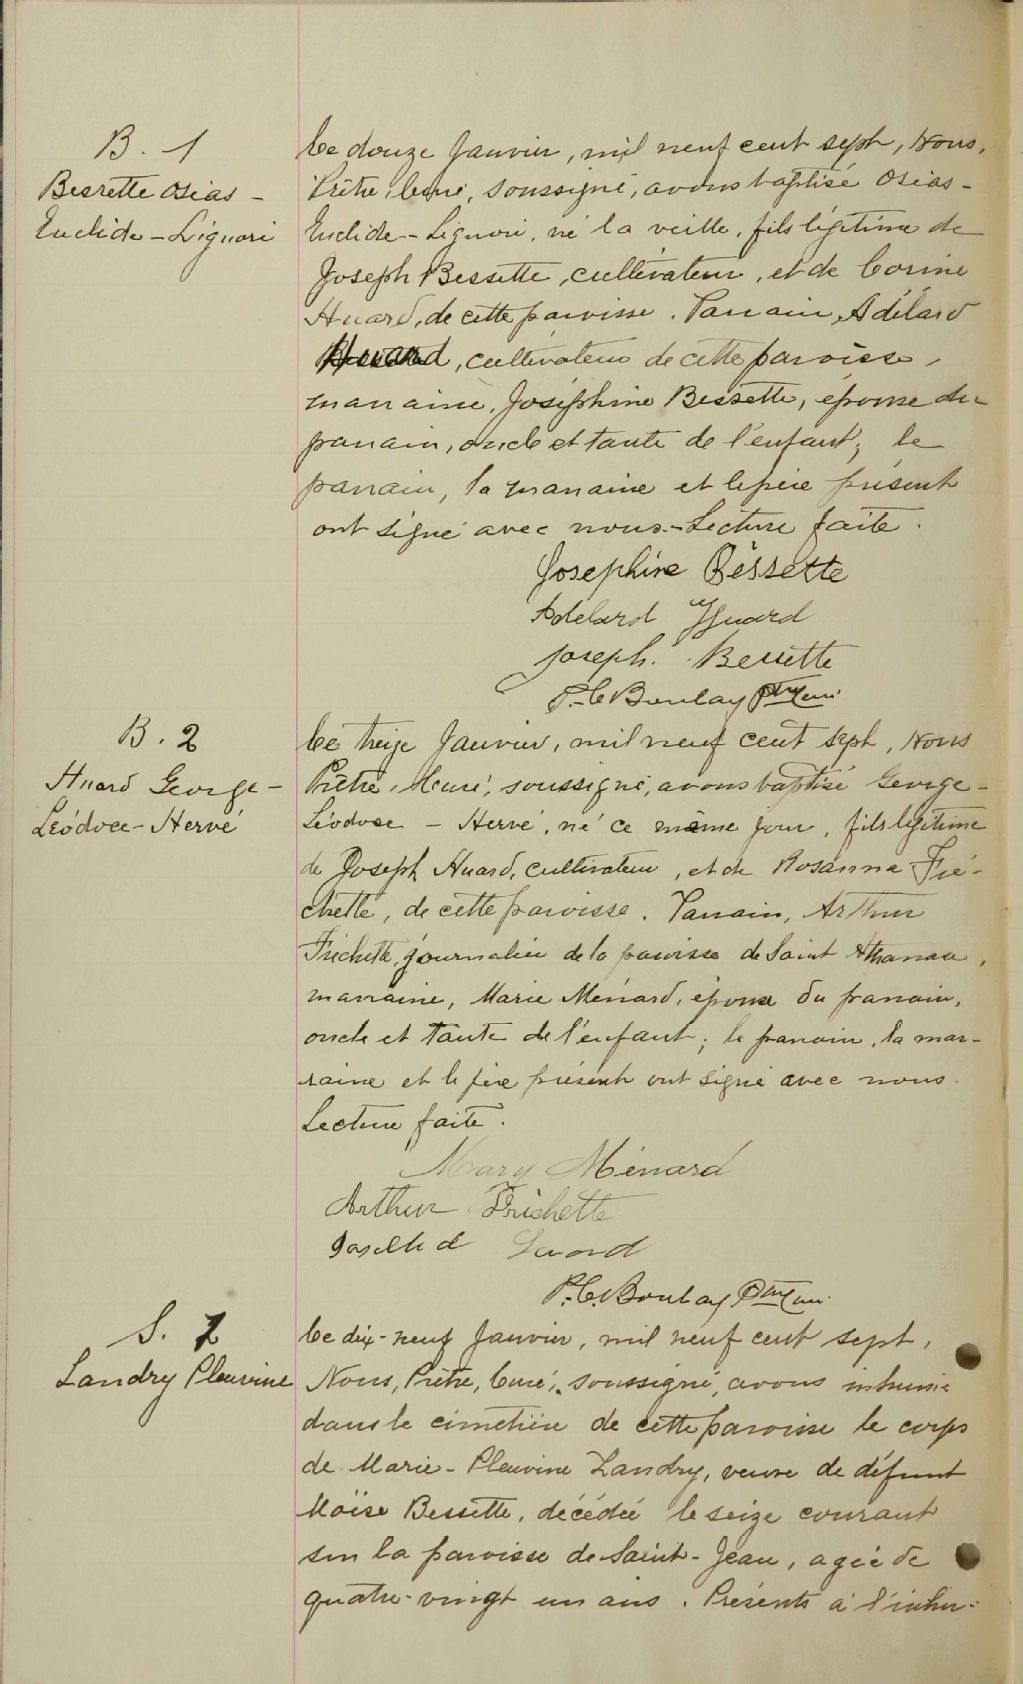 B. 1
Bessette Osias -
Euclide - Liguori
Ce douze Janvier, mil neuf cent sept, Nous,
Prêtre, Curé, soussigné, avons baptisé Osias -
Euclide - Liguori, né la veille, fils légitime de
Joseph Bessette, cultivateur, et de Corine
Huard, de cette paroisse. Parrain, Adélard
Huard, cultivateur de cette paroisse,
marraine, Joséphine Bessette, épouse du
parrain, oncle et tante de l'enfant; le
parrain, la marraine et le père présent
ont signé avec nous - Lecture faite.
Josephine Bessette
Adelard Huard
Joseph. Bessette
P. C. Boulay Ptre Curé
B. 2
Huard George -
Léodoce - Hervé
Ce treize Janvier, mil neuf cent sept, Nous
Prêtre, Curé, soussigné, avons baptisé George -
Léodoce - Hervé, né ce même jour, fils légitime
de Joseph Huard, cultivateur, et de Rosanna Fré-
chette, de cette paroisse. Parrain, Arthur
Fréchette, journalier de la paroisse de Saint Athanase,
marraine, Marie Ménard, épouse du parrain,
oncle et tante de l'enfant; le parrain, la mar-
raine et le père présent ont signé avec nous.
Lecture faite.
Mary Ménard
Arthur Frichette
P. C. Boulay Ptre Curé
S. 1
Landry Pleuvine
Ce dix-neuf Janvier, mil neuf cent sept,
Nous, Prêtre, Curé, soussigné, avons inhumé
dans le cimetière de cette paroisse le corps
de Marie - Pleuvine Landry, veuve de défunt
Moïse Bessette, décédée le seize courant
sur la paroisse de Saint-Jean, agée de
quatre-vingt un ans. Présents à l'inhu-